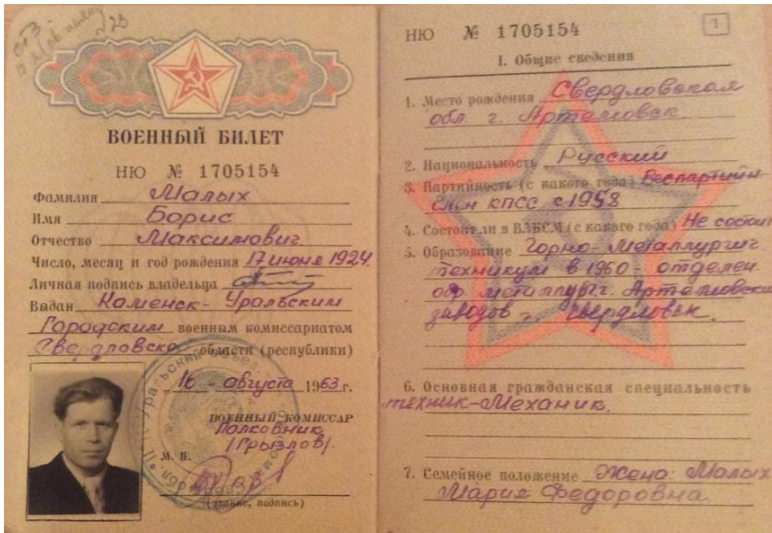 ВОЕННЫЙ БИЛЕТ
НЮ № 1705154
Фамилия Малых
Имя Борис
Отчество Максимович.
Число, месяц и год рождения 17 июня 1924
Личная подпись владельца
Выдан Каменск-Уральским
Городским военным комиссариатом
Свердловско области (республики)
16 - августа 1963 г.
ВОЕННЫЙ КОМИССАР
Полковник
(Грызлов).
М. П.
(звание, подпись)
НЮ № 1705154
1
I. Общие сведения
1. Место рождения Свердловская
обл. г. Артемовск.
2. Национальность Русский
3. Партийность (с какого года) Беспартийн
Член КПСС с 1958
4. Состоял ли в ВЛКСМ (с какого года) Не состоял
5. Образование Горно-Металлургич
техникум в 1960 - отделен.
металлург. Артемовски
г. Свердловск.
6. Основная гражданская специальность
техник-Механик.
7. Семейное положение Жена Малых
Мария Федоровна